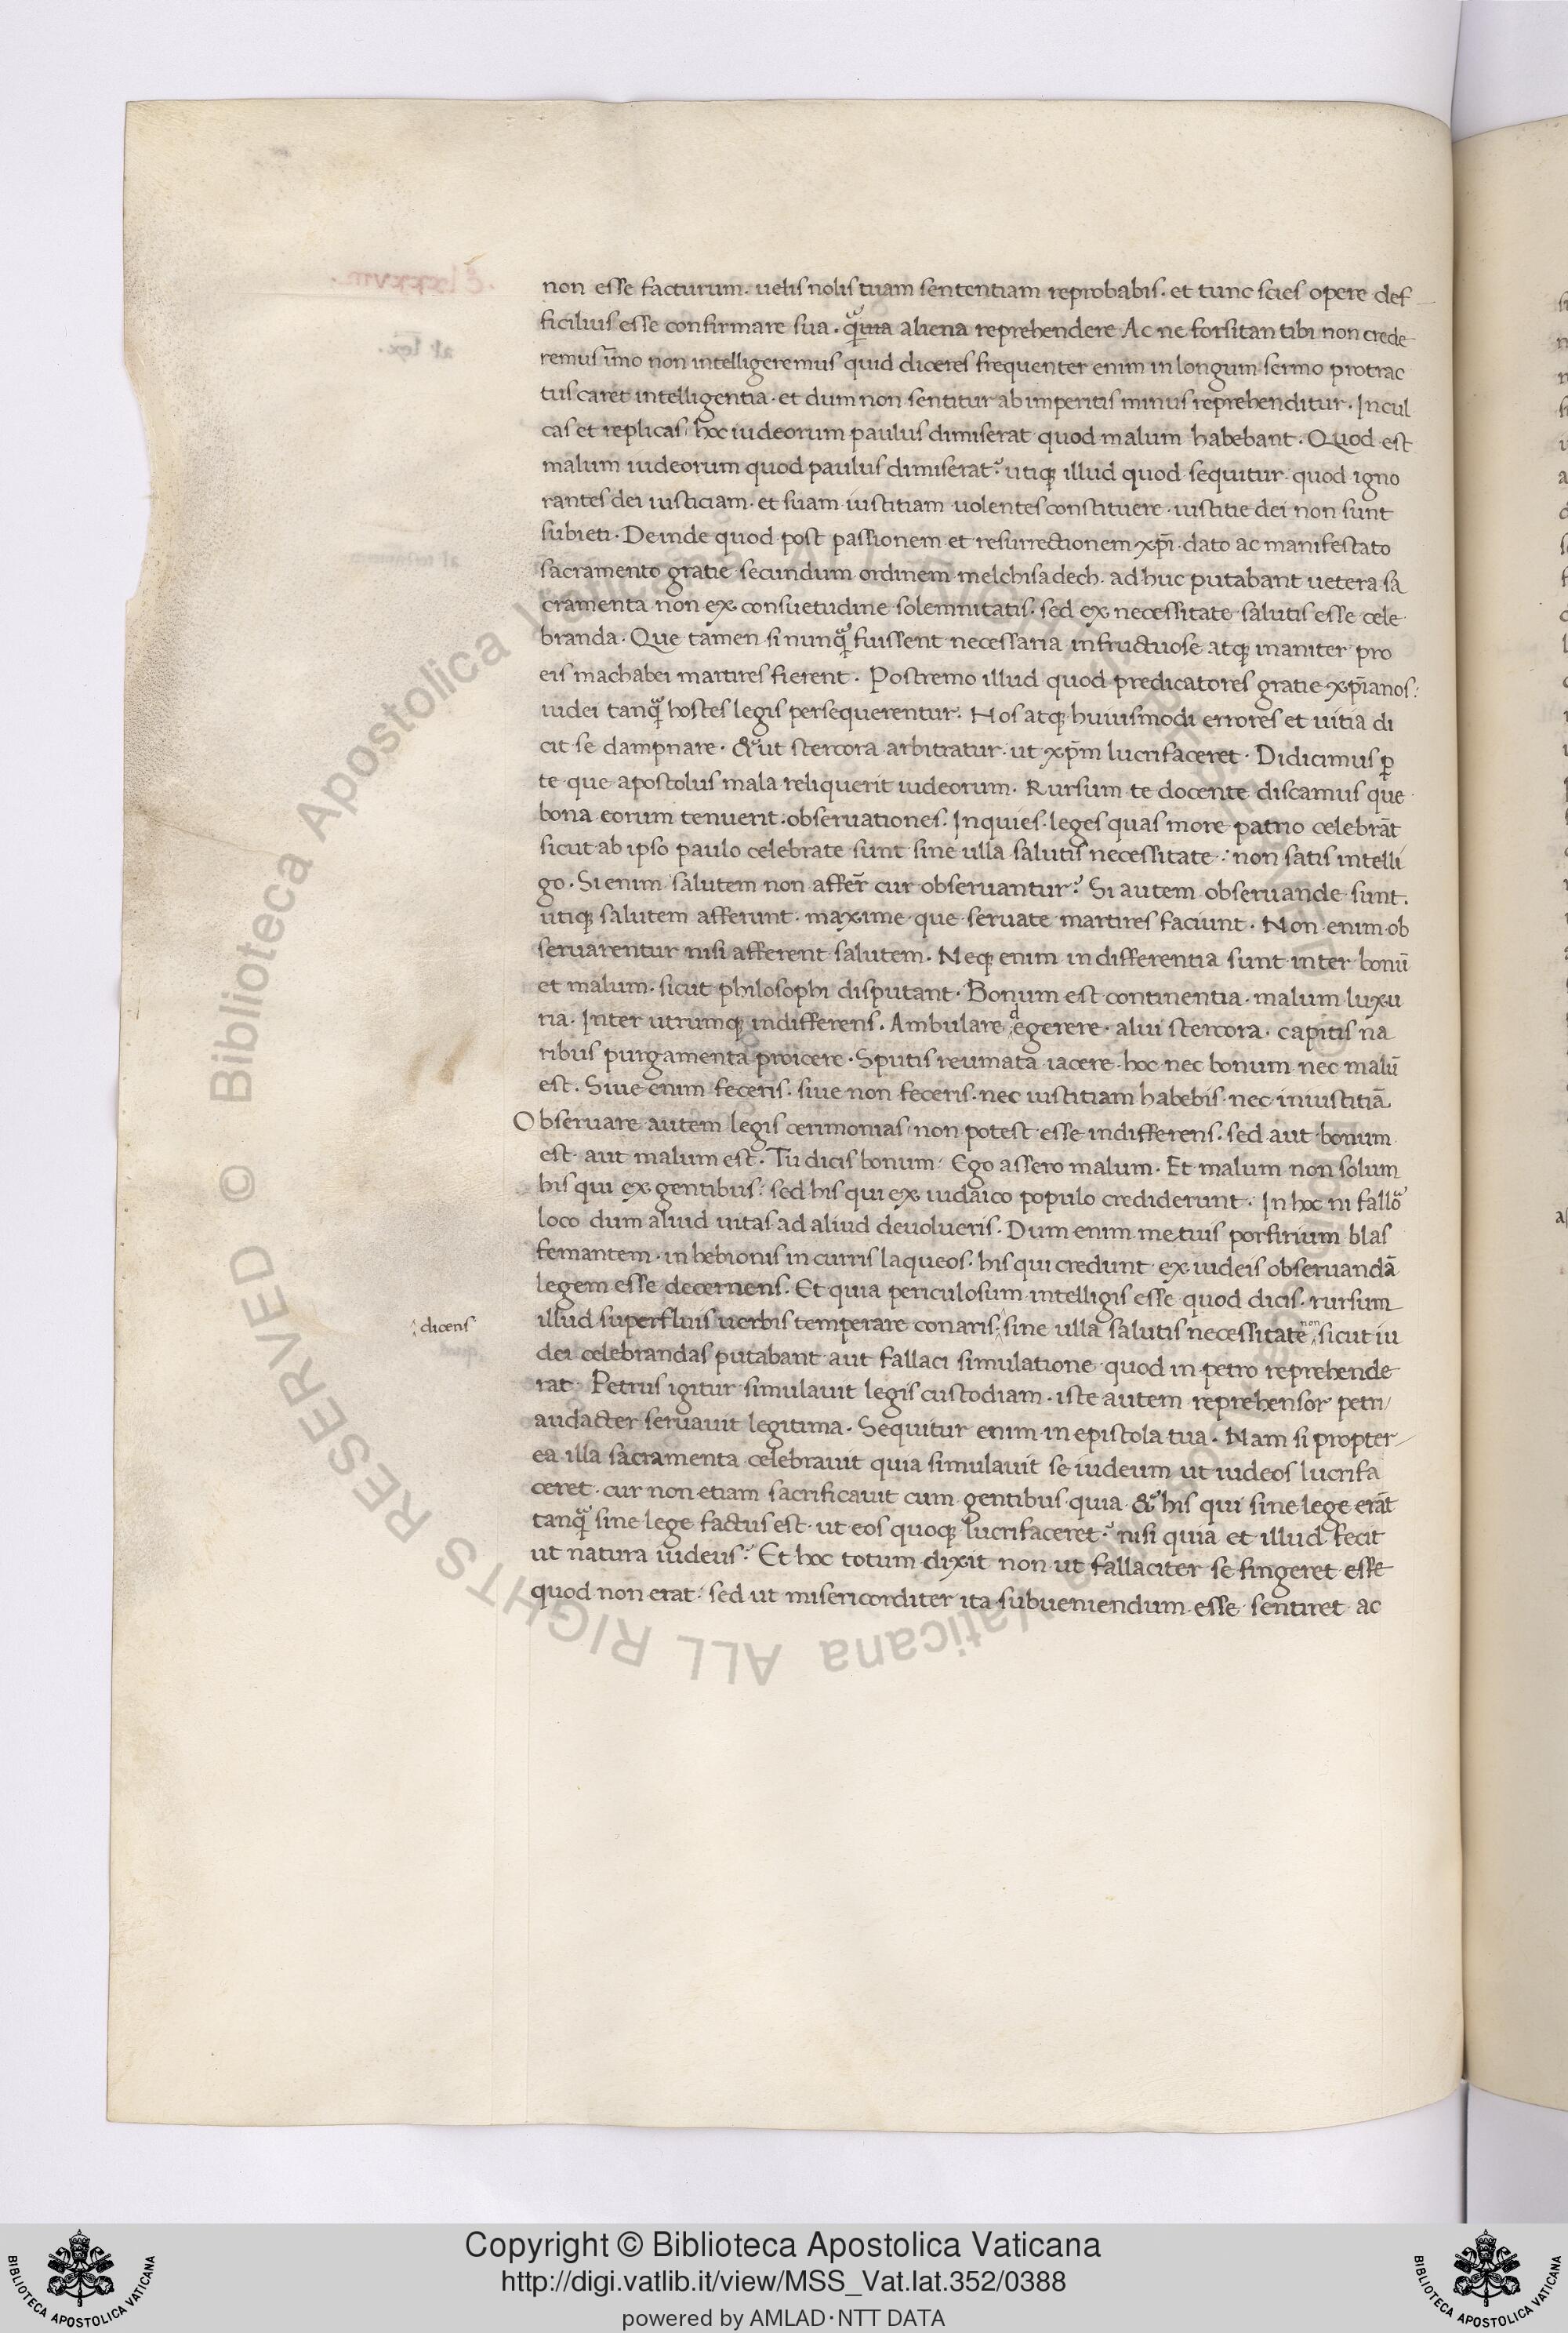 non esse facturum. uelis nolis tuam sententiam reprobabis. et tunc scies opere def
ficilius esse confirmare sua. quia aliena reprehendere Ac ne forsitan tibi non crede
remus īmo non intelligeremus quid diceres frequenter enim in longum sermo protrac
tus caret intelligentia. et dum non sentitur ab imperitis minus reprehenditur. Incul
cas et replicas hoc iudeorum paulus dimiserat quod malum habebant. Quod est
malum iudeorum quod paulus dimiserat? utiq; illud quod sequitur. quod igno
rantes dei iusticiam. et suam iustitiam uolentes constituere. iustitie dei non sunt
subieti. Deinde quod post passionem et resurrectionem xp̄i. dato ac manifestato
sacramento gratie secundum ordinem melchisadech. ad huc putabant uetera sa
cramenta non ex consuetudine solemnitatis. sed ex necessitate salutis esse cele
branda. Que tamen si nunq̃ fuissent necessaria infructuose atq; inaniter pro
eis machabei martires fierent. Postremo illud quod predicatores gratie xp̄ianos:
iudei tanq̃ hostes legis persequerentur. Hos atq; huiusmodi errores et uitia di
cit se dampnare. & ut stercora arbitratur. ut xp̄m lucrifaceret. Didicimus ꝑ
te que apostolus mala reliquerit iudeorum. Rursum te docente discamus que
bona eorum tenuerit. obseruationes. Inquies. leges quas more patrio celebrāt
sicut ab ipso paulo celebrate sunt sine ulla salutis necessitate: non satis intelli
go. Si enim salutem non affer̄ cur obseruantur? Si autem obseruande sunt.
utiq; salutem afferunt. maxime que seruate martires faciunt. Non enim ob
seruarentur nisi afferent salutem. Neq; enim indifferentia sunt inter bonū
et malum. sicut philosophi disputant. Bonum est continentia. malum luxu
ria. Inter utrumq; indifferens. Ambulare degerere. alui stercora. capitis na
ribus purgamenta proicere. Sputis reumata iacere. hoc nec bonum nec malū
est. Siue enim feceris. siue non feceris. nec iustitiam habebis. nec iniustitiā
Obseruare autem legis cerimonias non potest esse indifferens. sed aut bonum
est. aut malum est. Tu dicis bonum: Ego assero malum. Et malum non solum
his qui ex gentibus: sed his qui ex iudaico populo crediderunt. In hoc ni fallor̃
loco dum aliud uitas ad aliud deuolueris. Dum enim metuis porfirium blas
femantem. in hebionis incurris laqueos. his qui credunt ex iudeis obseruandā
legem esse decernens. Et quia periculosum intelligis esse quod dicis. rursum
dicens
illud superfluis uerbis temperare conaris: sine ulla salutis necessitate non sicut iu
dei celebrandas putabant aut fallaci simulatione quod in petro reprehende
rat. Petrus igitur simulauit legis custodiam. iste autem reprehensor petri
audacter seruauit legitima. Sequitur enim in epistola tua. Nam si propter
ea illa sacramenta celebrauit quia simulauit se iudeum ut iudeos lucrifa
ceret. cur non etiam sacrificauit cum gentibus. quia & his qui sine lege erāt
tanq̃ sine lege factus est. ut eos quoq; lucrifaceret? nisi quia et illud fecit
ut natura iudeus? Et hoc totum dixit non ut fallaciter se fingeret esse
quod non erat: sed ut misericorditer ita subueniendum esse sentiret ac
© Biblioteca Apostolica Vaticana ALL RIGHTS RESERVED
Copyright © Biblioteca Apostolica Vaticana
http://digi.vatlib.it/view/MSS_Vat.lat.352/0388
powered by AMLAD·NTT DATA
BIBLIOTECA APOSTOLICA VATICANA
BIBLIOTECA APOSTOLICA VATICANA